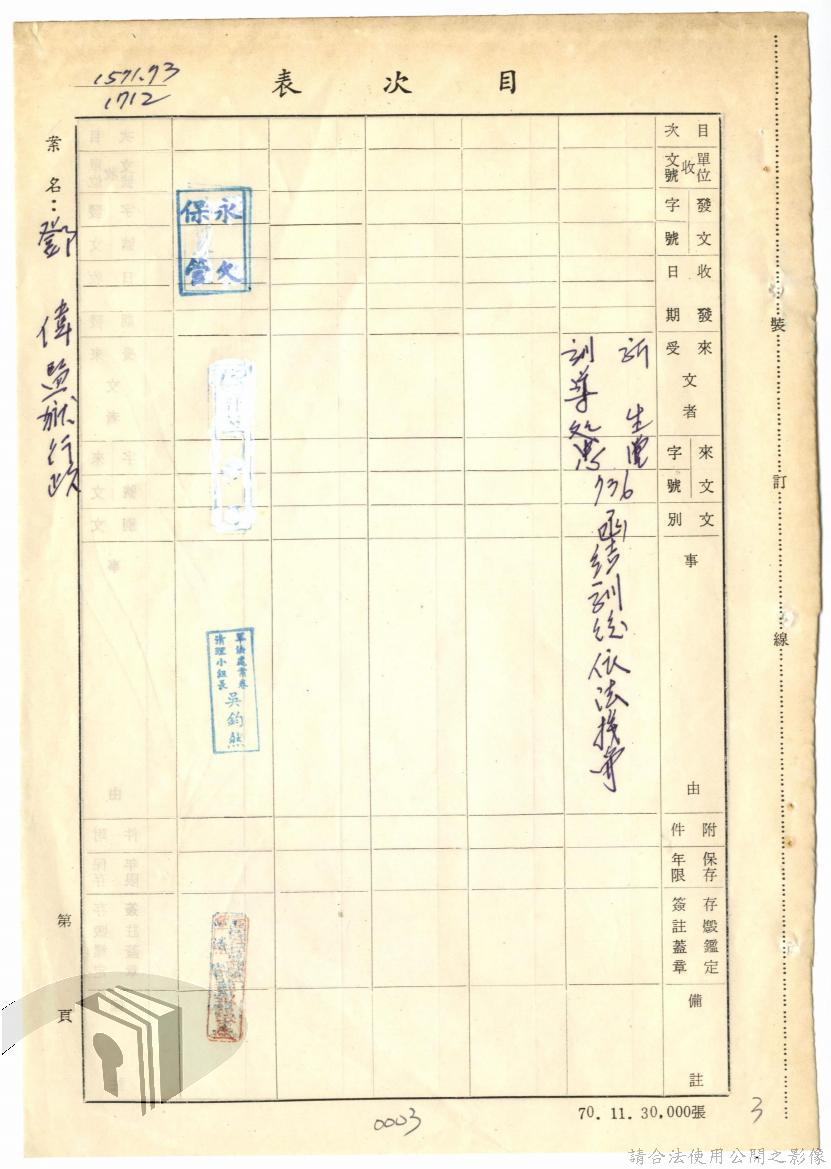 1571.73
1712
目次表
案名：鄧偉監獄行政
目次
收文號
單位
發文字號
收發日期
來受文者
來文字號
文別
事由
附件
保存年限
存燬鑑定簽註蓋章
備註
新生
訓導處
736
函結訓後依法
永久保管
軍法處案卷
清理小組長
吳鈞然
第頁
裝訂線
0003
70. 11. 30,000張
3
請合法使用公開之影像